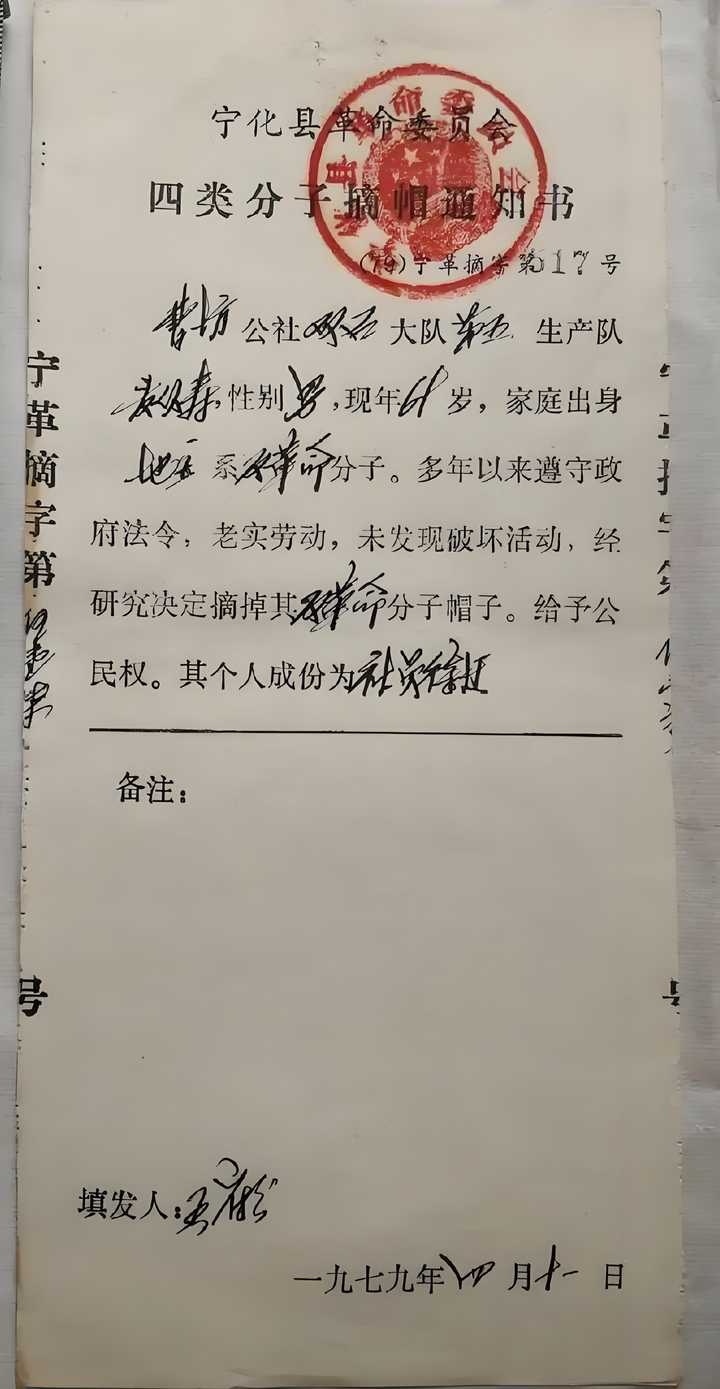 宁化县革命委员会
四类分子摘帽通知书
(79)宁革摘字第517号
曹坊公社双石大队第五生产队
,性别男,现年61岁,家庭出身
地主系反革命分子。多年以来遵守政
府法令,老实劳动,未发现破坏活动,经
研究决定摘掉其反革命分子帽子。给予公
民权。其个人成份为社员
备注:
填发人:王
一九七九年四月十一日
宁革摘字第
号